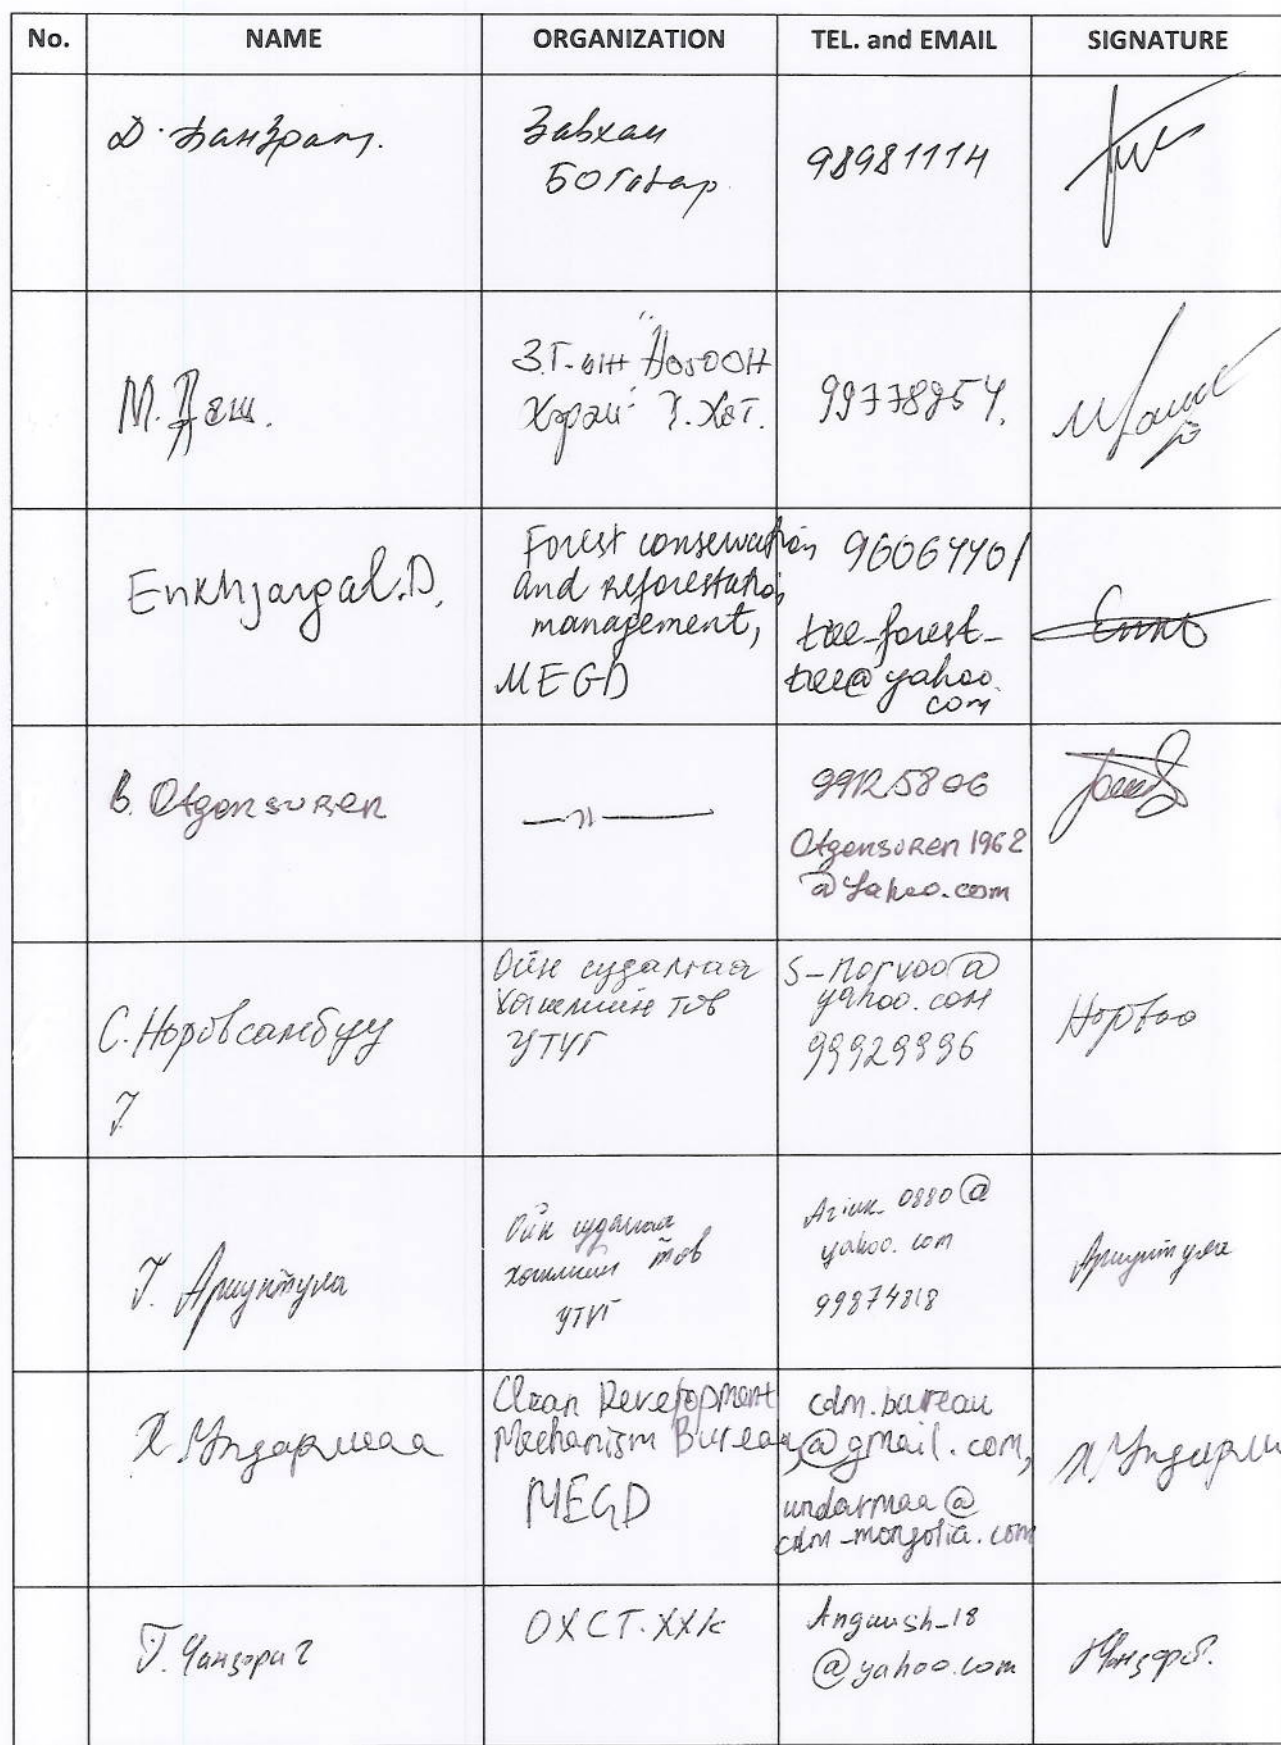 No. NAME ORGANIZATION TEL. and EMAIL SIGNATURE
Д. Банзрагч.
Завхан
98981114
М. Даш.
З.Г-ын "Ногоон
Хэрэм"
99778954.
Enkhjargal.D.
Forest conservation
and reforestation
management,
MEGD
96064401
tree-forest-
tree@yahoo.
com
B. Otgonsuren
—〃—
99125806
Otgonsuren1962
@Yahoo.com
С. Норовсамбуу
Ойн судалгаа
хөгжлийн төв
УТҮГ
s-norvoo@
yahoo.com
99929996
Норвоо
Г. Ариунтуяа
Ойн судалгаа
хөгжлийн төв
УТҮГ
Ariuk_0880@
yahoo.com
99874818
Ариунтуяа
Х. Ундармаа
Clean Development
Mechanism Bureau,
MEGD
cdm.bureau
@gmail.com,
undarmaa@
cdm-mongolia.com
Г. Чанзориг
ОХСТ. ХХК
@yahoo.com